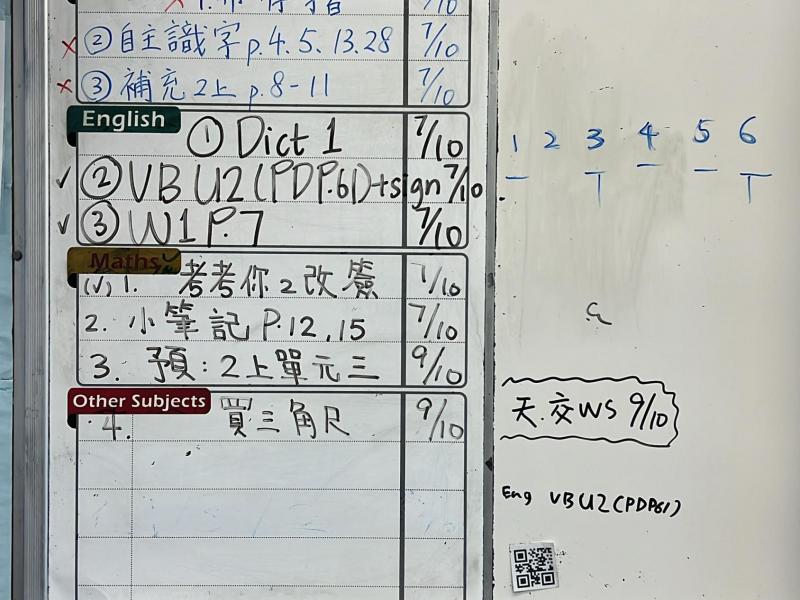 ② 自主識字 p.4.5.13.28 7/10
③ 補充2上 p.8-11 7/10
English
① Dict 1 7/10
✓ ② VB U2 (PDP.61)+sign 7/10
✓ ③ W1 P.7 7/10
Maths
(✓) 1. 考考你2改簽 7/10
2. 小筆記 P.12,15 7/10
3. 預:2上單元三 9/10
Other Subjects
4. 買三角尺 9/10
1 2 3 4 5 6
天.交WS 9/10
Eng VB U2 (PDP61)